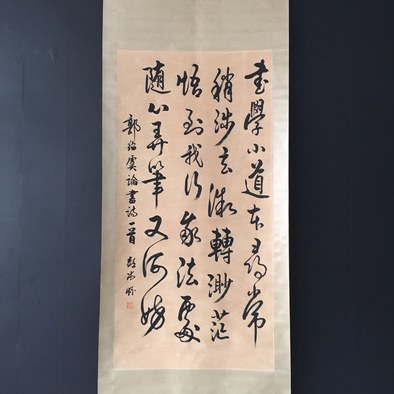 書學小道本尋常
稍涉玄微轉渺茫
悟到我行我法處
隨心弄筆又何妨
郭紹虞論書詩一首